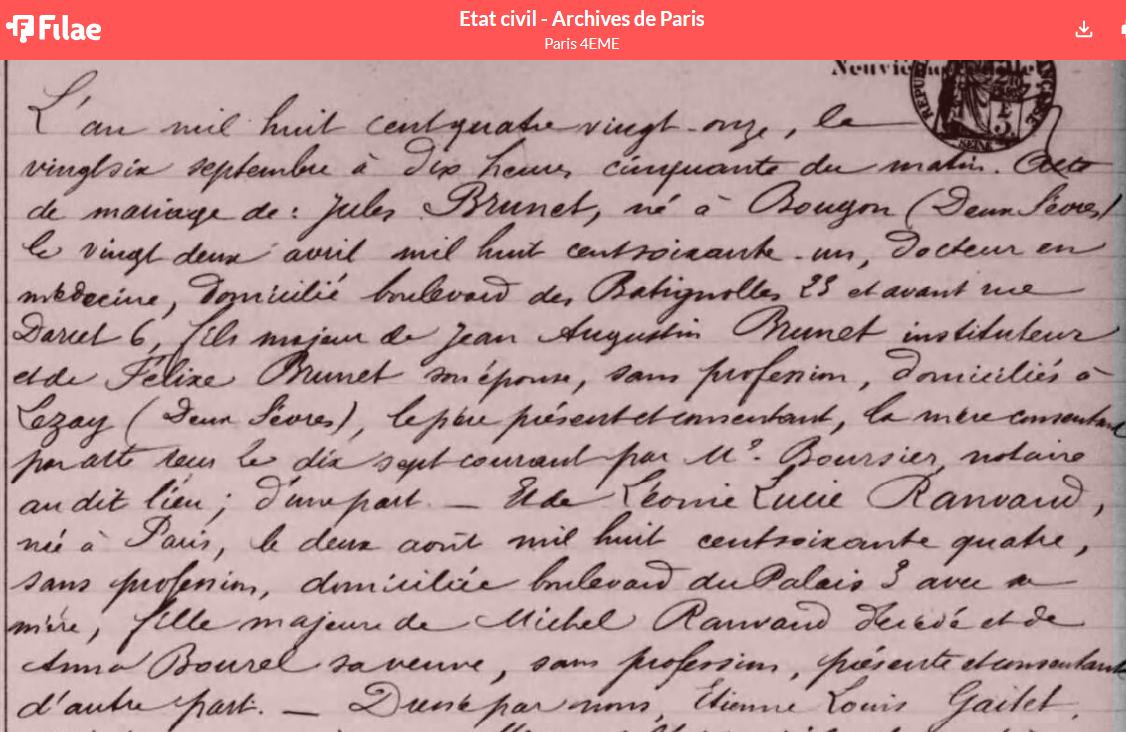 Filae
Etat civil - Archives de Paris
Paris 4EME
L'an mil huit cent quatre vingt-onze, le
vingt six septembre à dix heures cinquante du matin. Acte
de mariage de: Jules Brunet, né à Bougon (Deux Sèvres)
le vingt deux avril mil huit cent soixante-un, docteur en
médecine, domicilié boulevard des Batignolles 23 et avant rue
Darcet 6, fils majeur de Jean Augustin Brunet instituteur
et de Félixe Brunet son épouse, sans profession, domiciliés à
Lezay (Deux Sèvres), le père présent et consentant, la mère consentant
par acte reçu le dix sept courant par Me. Boursier, notaire
au dit lieu; d'une part. — Et de Léonie Lucie Ranvaud,
née à Paris, le deux août mil huit cent soixante quatre,
sans profession, domiciliée boulevard du Palais 3 avec sa
mère, fille majeure de Michel Ranvaud décédé et de
Anna Bourel sa veuve, sans profession, présente et consentante
d'autre part. — Dressé par nous, Etienne Louis Gaitet,